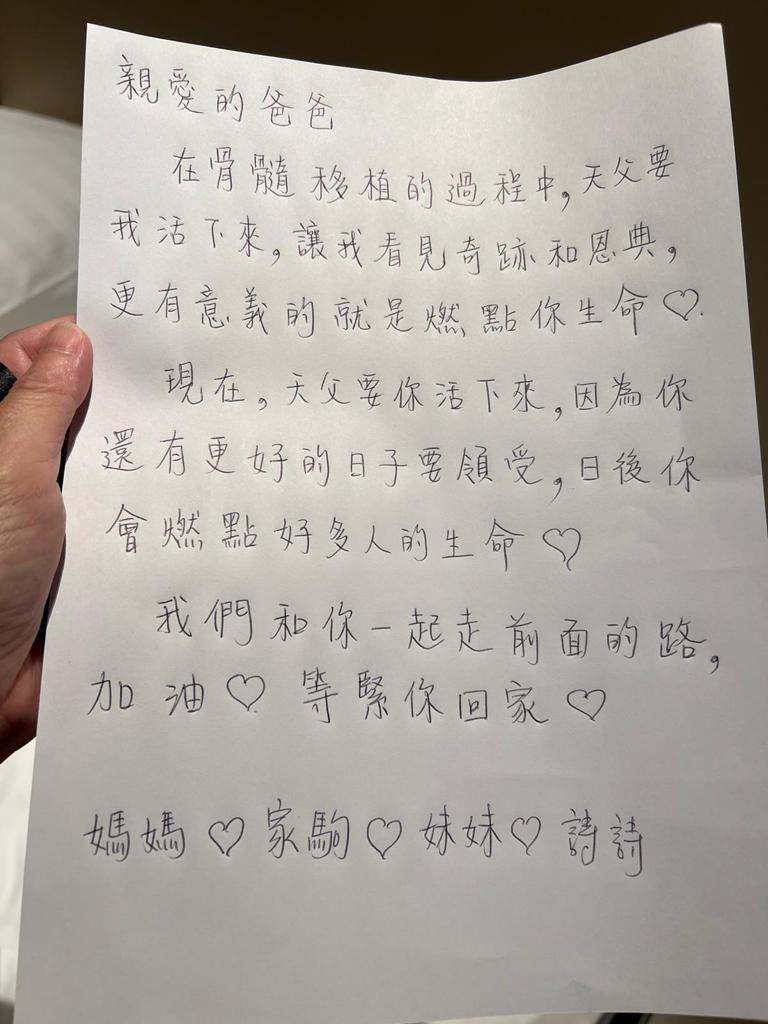 親愛的爸爸
在骨髓移植的過程中,天父要
我活下來,讓我看見奇跡和恩典,
更有意義的就是燃點你生命♡.
現在,天父要你活下來,因為你
還有更好的日子要領受,日後你
會燃點好多人的生命♡
我們和你一起走前面的路,
加油♡ 等緊你回家♡
媽媽♡家駒♡妹妹♡詩詩